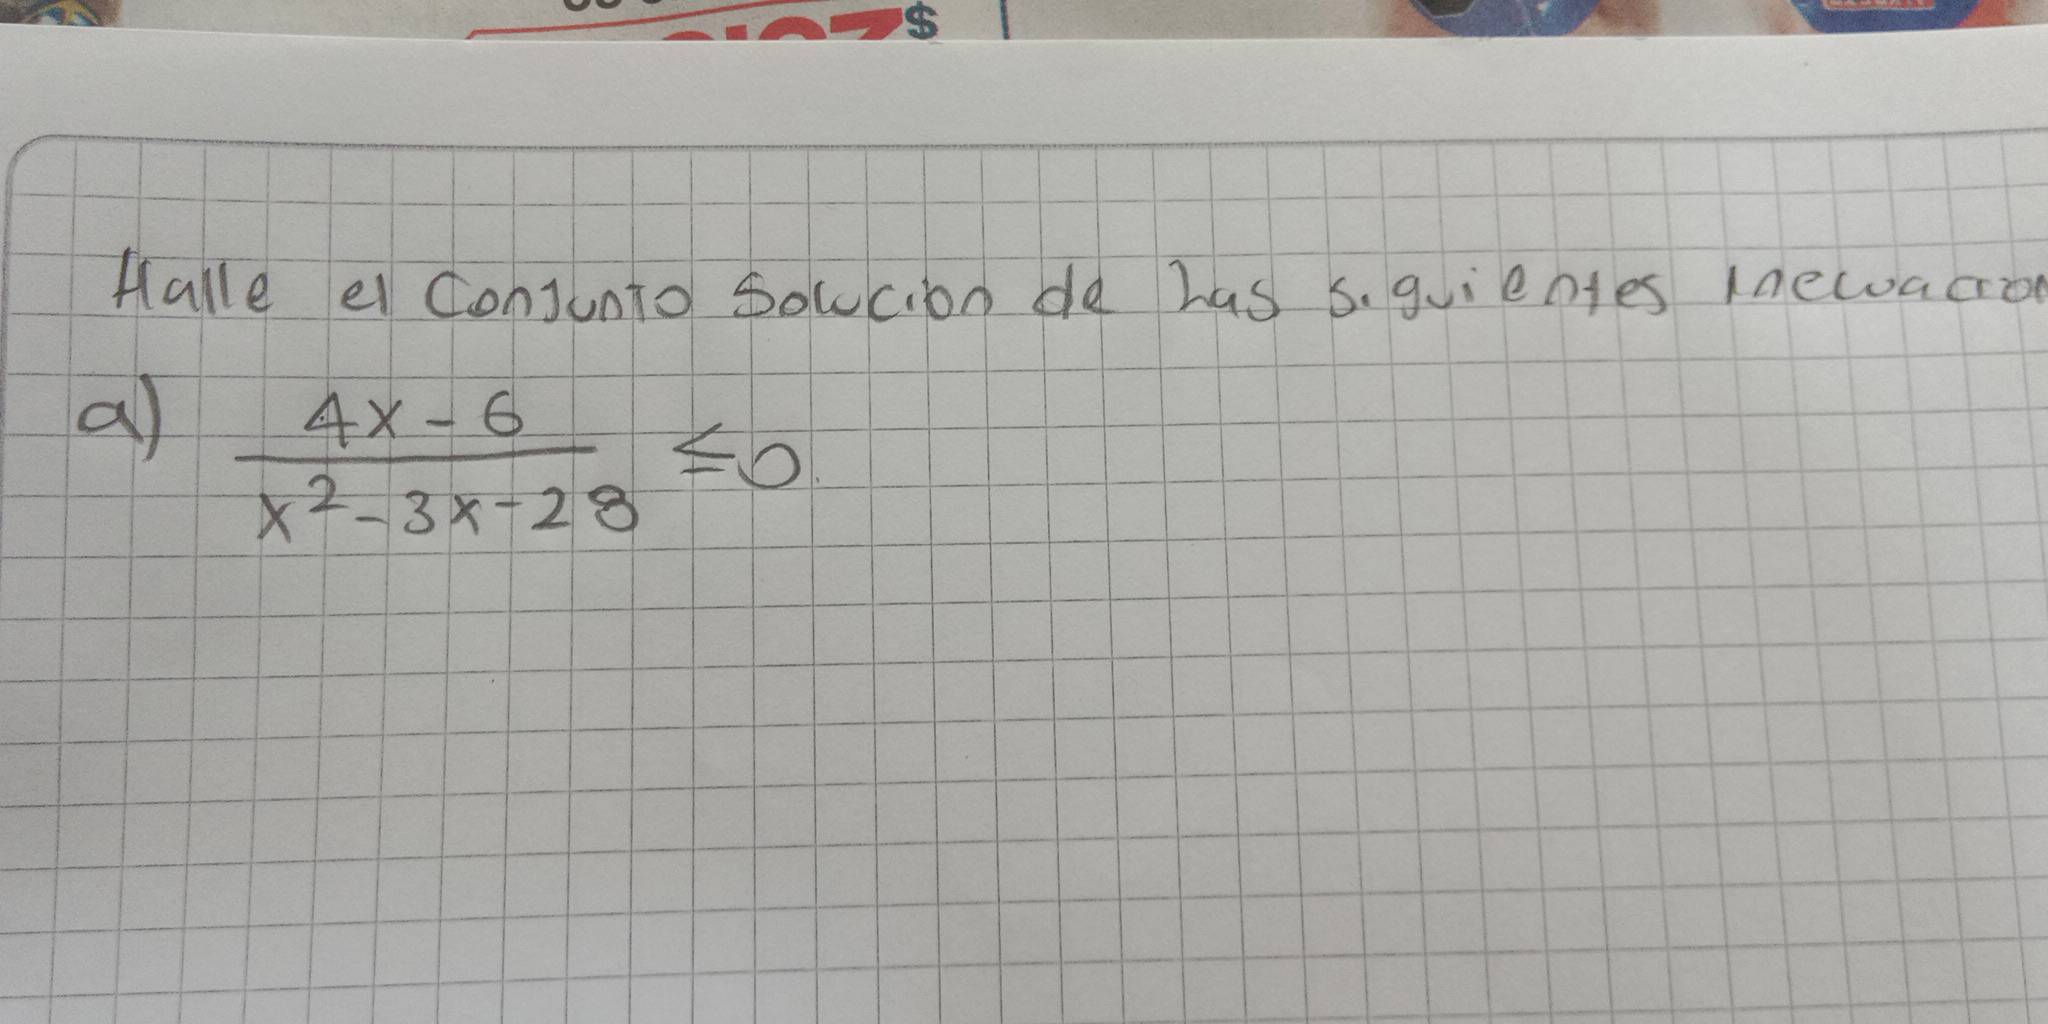 $
Halle el Conjunto Solución de las siguientes inecuacion
a) 4x - 6
≤0.
x² - 3x - 28